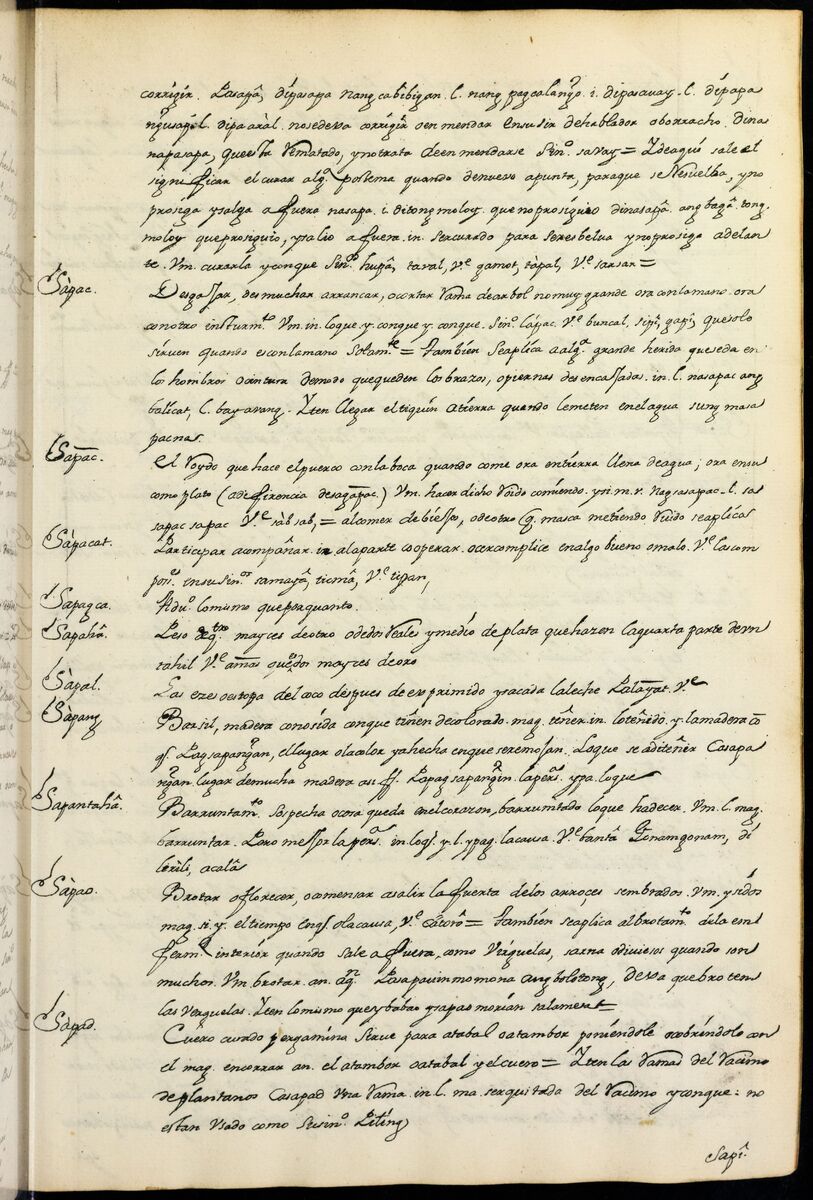 corrigir. Pasapâ, dipasapa nang cabibigan. l. nang pagcalango. i. dipasauay. l. dipapa
ngusapil dipa aràl. nosedexa corrigir oenmendar ensusir dehablador oborracho. dina
napasapa, queesta Rematado, ynotrata deenmendarse Sinº. saray= Ydeaqui sale el
significar el curar algª. postema quando denuevo apunta, paraque se Resuelba, yno
prosiga ysalga afuera nasapa. i. ditongmoloy. que noprosiguio dinasapâ. ang bagâ tong.
moloy queprosiguio, ysalio afuera. in. sercurado para seresbelua ynoprosiga adelan
te. Vm. curarla yconque Sinº. hupâ, taval, Vᵉ gamot, tàpal, Vᵉ sarsar=
Sàpac. Desgajar, desmuchar arrancar, ocortar Rama dearbol nomuy grande ora conlamano. ora
conotro insturmᵗᵒ. Vm. in loque y. conque y conque. Sinº. lápac. Vᵉ buncal, sipi, gapi, quesolo
siruen quando esconlamano Solamᵗᵉ= tambien seaplica aalgª. grande herida queseda en
los hombros ocintura demodo quequeden los brazos, opiernas desencajadas. in. l. nasapac ang
balicat, l. bayavang. Yten llegar eltiquin atierra quando lemeten enelagua sung masa
pacnas.
Sapac. el Roydo que hace elpuerco conlaboca quando come ora entierra llena deagua; ora ensu
como plato (adifirencia desagapac.) Vm. hacer dicho Roido comiendo. ysi. m. r. Nagsasapac. l. sas
sapac sapac Vᵉ sàbsab,= alcomer debiejo, odeotro q̃. masca metiendo Ruido seaplica
Sàpacat. Participar acompañar. in alaparte cooperar. osercomplice enalgo bueno omalo. Vᵉ lascom
posˢ. ensusinºˢ samayâ, ticmâ, Vᵉ tipan,
Sapagca. Aduº. lomismo queporquanto.
Sapahâ. Peso mayces deotro odedos Reales ymedio de plata quehazen laquarta parte deun
tahil Vᵉ amas quedos mayces deoro
Sàpal. Las ezes oestopa del coco despues de exprimido ysacada laleche Palayat. Vᵉ
Sàpang Barsil, madera conosida conque tiñen decolorado. mag. teñer. in. loteñido. y. lamadera cõ
q̃. Pagsapangan, ellugar olacolor yahecha enque seremojan. Loque seaditeñir Casapa
ngan. lugar demucha madera asi Papagsapangin. lapersᵃ. ypa. loque
Sapantahâ. Barruntamᵗᵒ. Sospecha ocosa queda enelcorazon, barrumtado loque hadecer. Vm. l. mag.
barruntar. Pero mejor lapersᵃ. in loq̃. y. l. ypag. lacausa. Vᵉ bantâ Gonamgonam, di
lidili, acalâ
Sàpao. Brotar oflorecer, ocomensar asalir lafuerta delos arroçes sembrados. Vm. ysidos
mag. si. y. el tiempo enq̃ olacausa, Vᵉ = tambien seaplica albrotamᵗᵒ. dela en
fermᵈ. interior quando sale afuera, como Virguelas, sarna odiuiesos quando son
muchos. Vm. brotar. an. aqⁿ. Pasapauinmomona ang bolotong, dexa que broten
las verguelas. Yten lomismo que ybabao ysapao morian salamesa=
Sàpad. Cuero curado pergamina Sirue para atabal oatambor poniendole ocobriendolo con
el mag. encorrar an. el atambor oatabal yelcuero= Yten las Ramas del Racimo
deplantanos Casapad Vna Rama. in. l. ma. serquitada del Racimo yconque: no
estan Vsado como Susinº. Piling
Sapi.